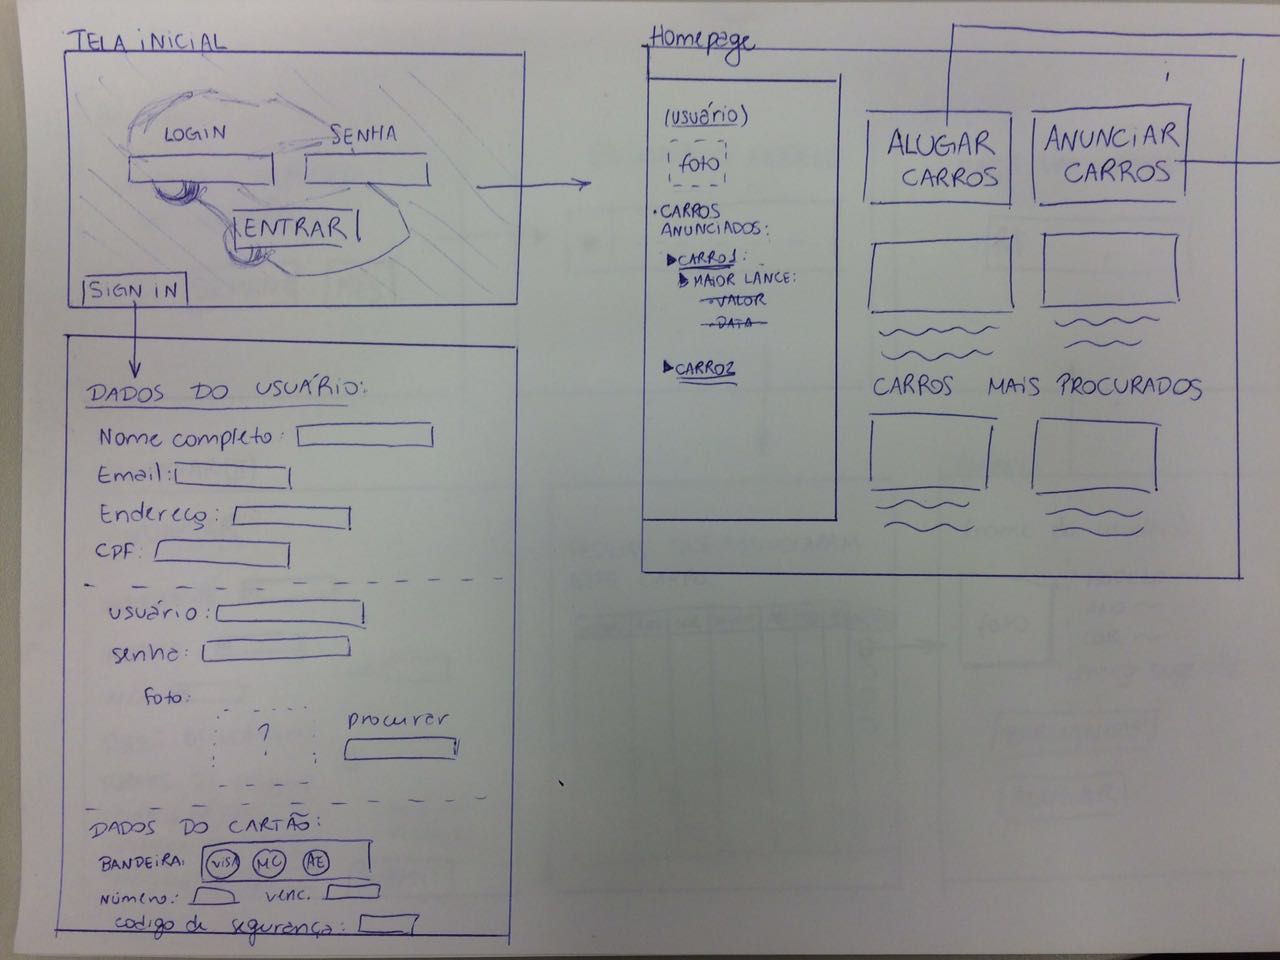 TELA INICIAL
LOGIN SENHA
ENTRAR
SIGN IN
DADOS DO USUÁRIO:
Nome completo:
Email:
Endereço:
CPF:
usuário:
senha:
foto:
?
procurar
DADOS DO CARTÃO:
BANDEIRA: VISA MC AE
Número: venc.
codigo de segurança:
Homepage
(usuário)
foto
• CARROS
ANUNCIADOS:
CARRO1:
MAIOR LANCE:
VALOR
DATA
CARRO2
ALUGAR
CARROS
ANUNCIAR
CARROS
CARROS MAIS PROCURADOS